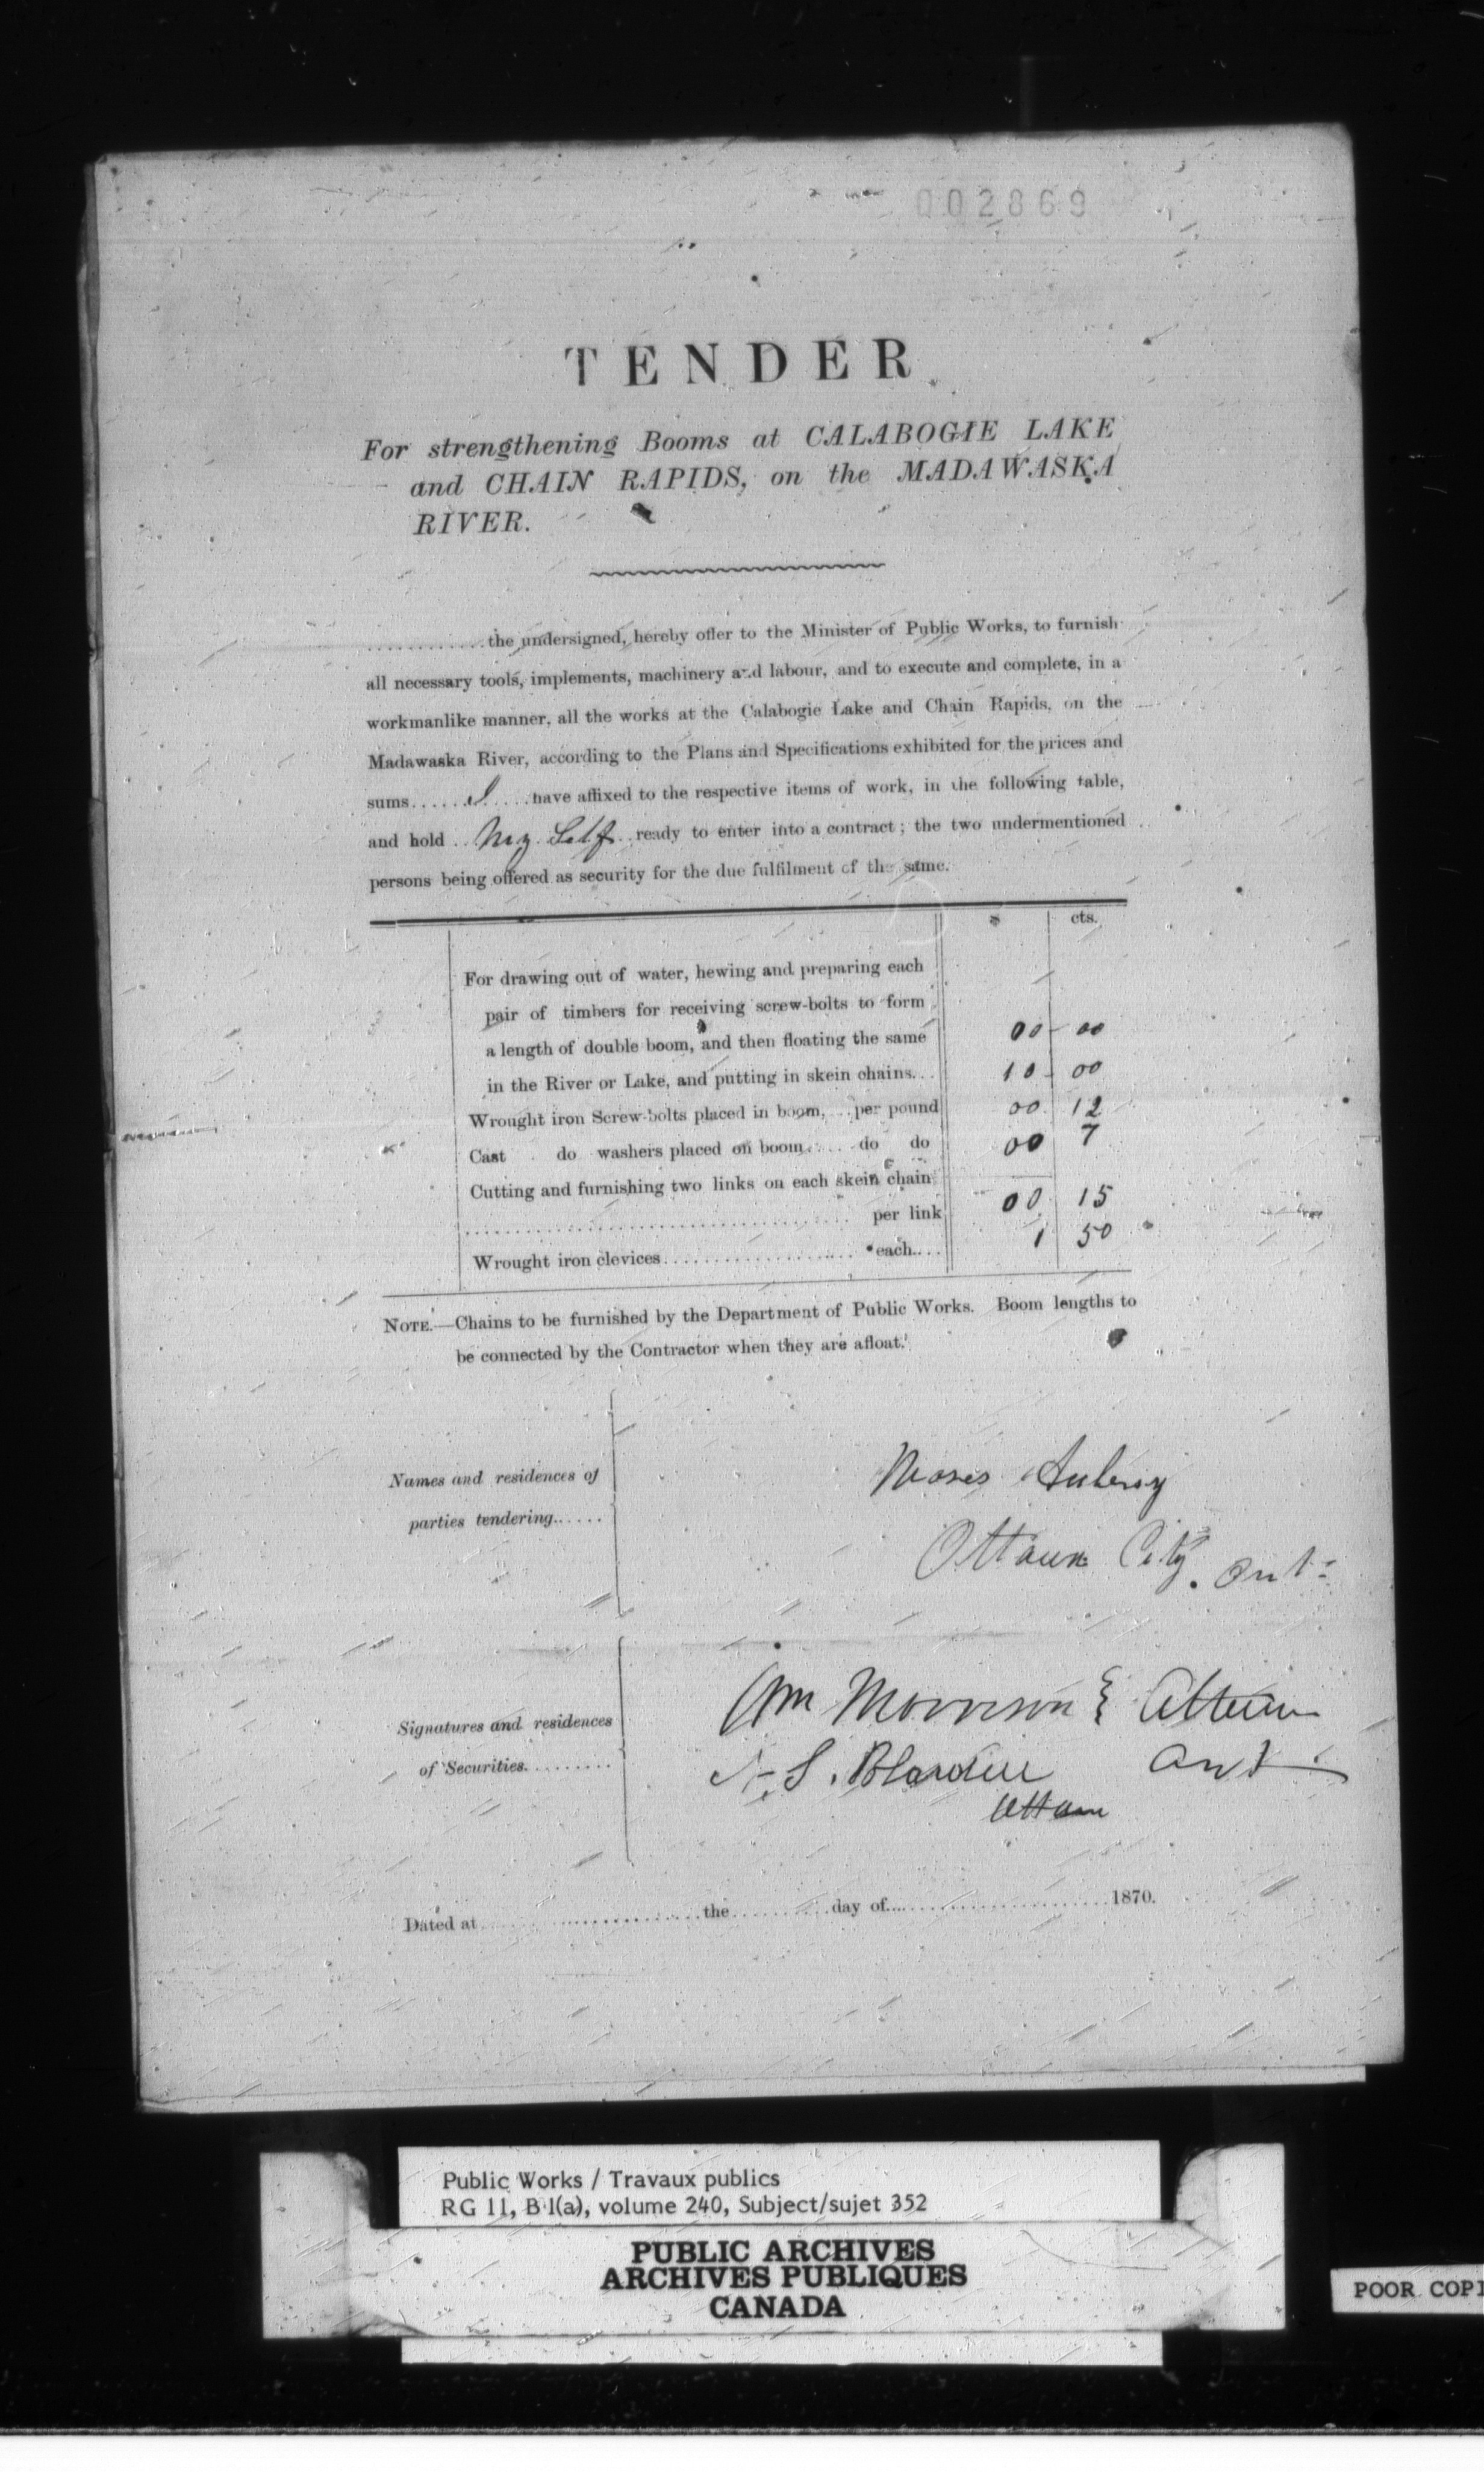 002869
TENDER
For strengthening Booms at CALABOGIE LAKE
and CHAIN RAPIDS, on the MADAWASKA
RIVER.
............the undersigned, hereby offer to the Minister of Public Works, to furnish
all necessary tools, implements, machinery and labour, and to execute and complete, in a
workmanlike manner, all the works at the Calabogie Lake and Chain Rapids, on the
Madawaska River, according to the Plans and Specifications exhibited for the prices and
sums......I.....have affixed to the respective items of work, in the following table,
and hold..My Self..ready to enter into a contract; the two undermentioned
persons being offered as security for the due fulfilment of the same.
cts.
For drawing out of water, hewing and preparing each
pair of timbers for receiving screw-bolts to form
a length of double boom, and then floating the same 00 00
in the River or Lake, and putting in skein chains... 10 00
Wrought iron Screw-bolts placed in boom,...per pound 00 12
Cast do washers placed on boom...... do do 00 7
Cutting and furnishing two links on each skein chain
per link 00 15
Wrought iron clevices.................... each.... 1 50
NOTE.—Chains to be furnished by the Department of Public Works. Boom lengths to
be connected by the Contractor when they are afloat.
Names and residences of
parties tendering......
Moses Aubrey
Ottawa City. Ont
Signatures and residences
of Securities.........
Wm Morrison } Ottawa
N. S. Ont
Ottawa
Dated at......................the..........day of........................1870.
Public Works / Travaux publics
RG 11, B 1(a), volume 240, Subject/sujet 352
PUBLIC ARCHIVES
ARCHIVES PUBLIQUES
CANADA
POOR COPI